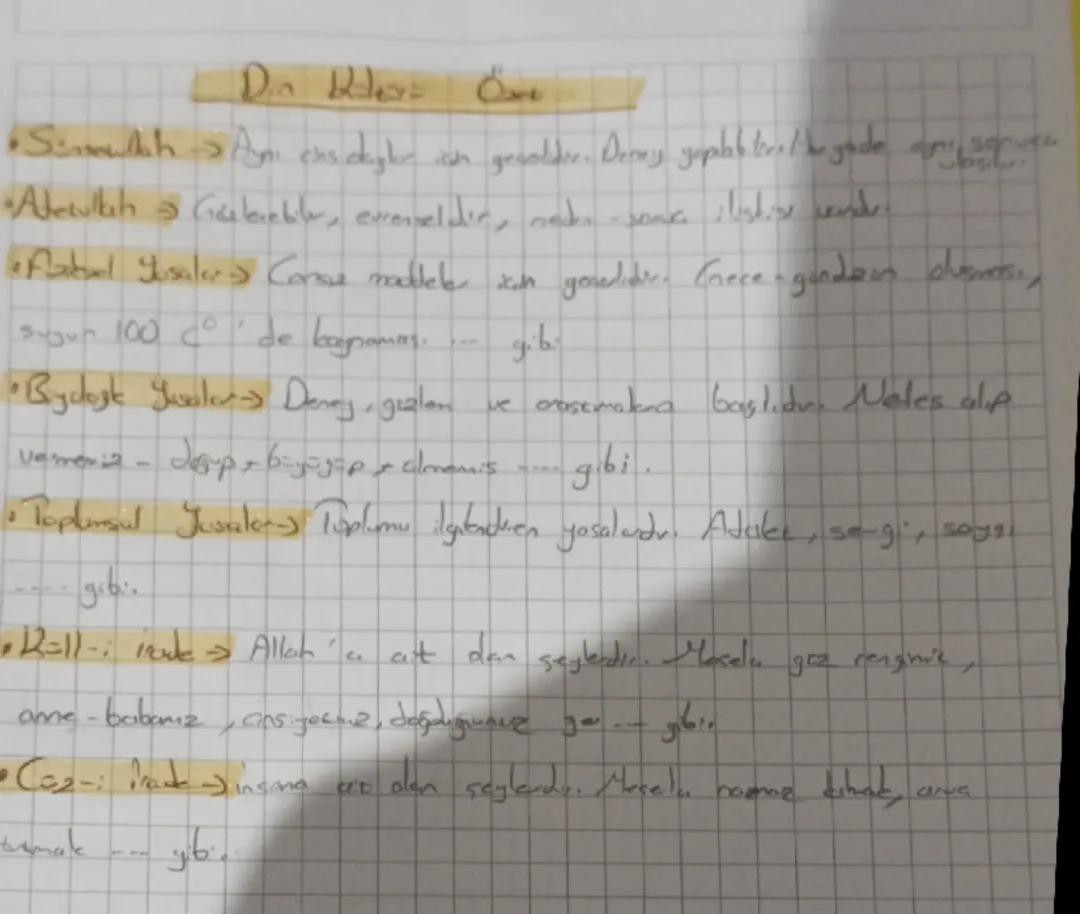 Din Kültürü Özet
• Sünnetullah → Aynı için geçerlidir. Deney yapılabilir. aynı sonuca
• Adetullah → evrenseldir, neden-sonuç ilişkisi vardır.
• Fiziksel Yasalar → Cansız maddeler için geçerlidir. Gece-gündüzün oluşması,
suyun 100 C°'de kaynaması .... gibi
• Biyolojik Yasalar → Deney, gözlem ve araştırmalara bağlıdır. Nefes alıp
vermemiz - doğup, büyüyüp, ölmemiz .... gibi.
• Toplumsal Yasalar → Toplumu ilgilendiren yasalardır. Adalet, sevgi, saygı
.... gibi.
• Külli irade → Allah'a ait olan şeylerdir. Mesela göz rengimiz,
anne-babamız, cinsiyetimiz, doğduğumuz yer .... gibi.
• Cüzi irade → insana ait olan şeylerdir. Mesela namaz kılmak, oruç
tutmak .... gibi.